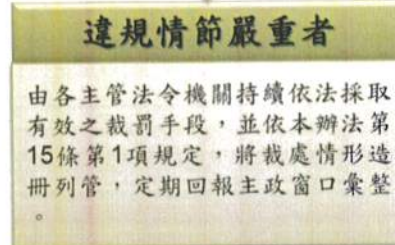 違規情節嚴重者
由各主管法令機關持續依法採取
有效之裁罰手段，並依本辦法第
15條第1項規定，將裁處情形造
冊列管，定期回報主政窗口彙整
。